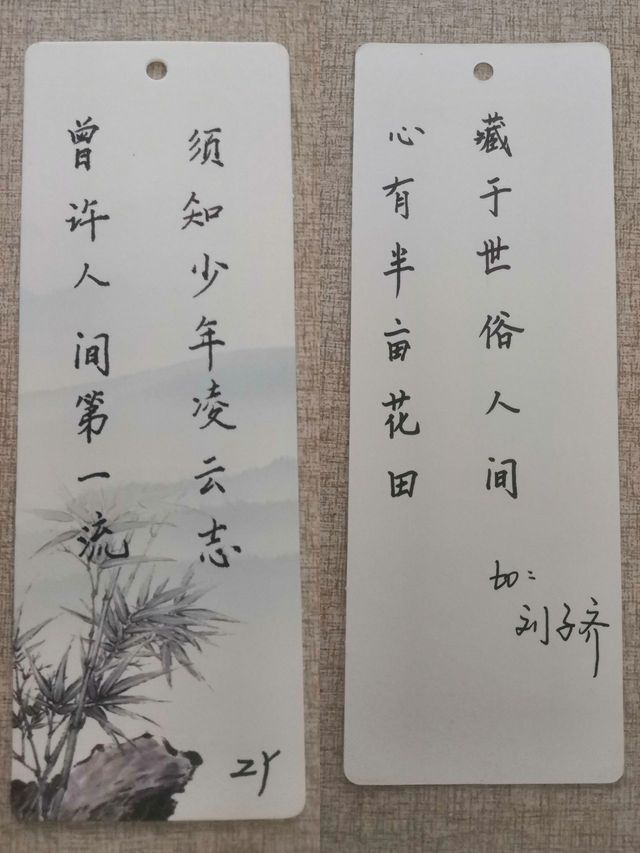 须知少年凌云志
曾许人间第一流
ZY
藏于世俗人间
心有半亩花田
to:
刘子齐